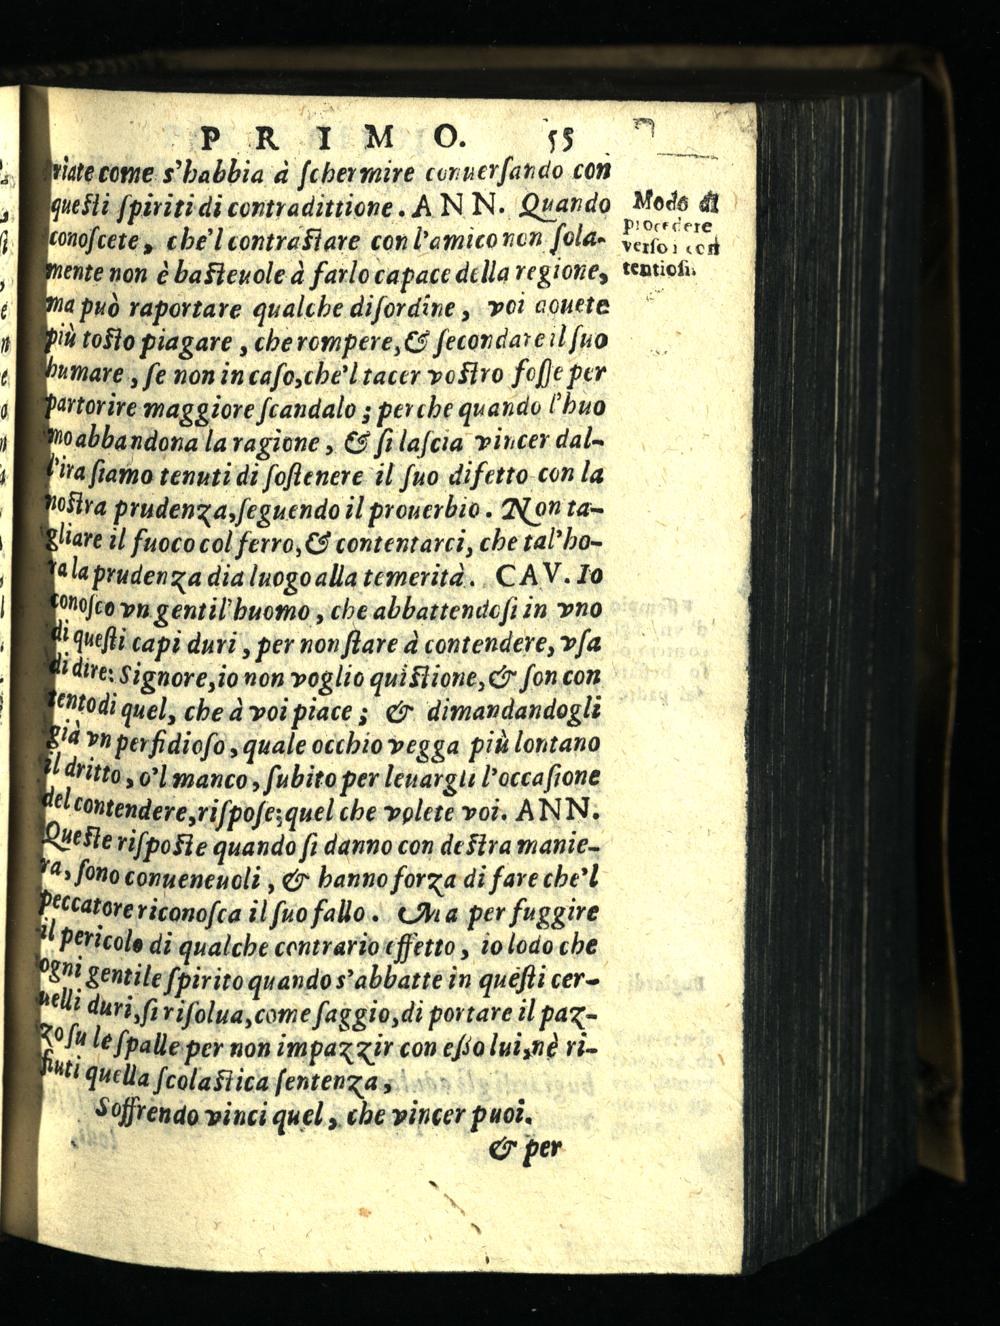 PRIMO. 55
uiate come s'habbia à ſchermire conuerſando con
queſti ſpiriti di contradittione. ANN. Quando
conoſcete, che'l contraſtare con l'amico non ſola-
mente non è baſteuole à farlo capace della regione,
ma può raportare qualche diſordine, voi douete
più toſto piagare, che rompere, & ſecondare il ſuo
humare, ſe non in caſo, che'l tacer voſtro foſſe per
partorire maggiore ſcandalo; perche quando l'huo
mo abbandona la ragione, & ſi laſcia vincer dal-
l'ira ſiamo tenuti di ſoſtenere il ſuo difetto con la
noſtra prudenza, ſeguendo il prouerbio. Non ta-
gliare il fuoco col ferro, & contentarci, che tal'ho-
ra la prudenza dia luogo alla temerità. CAV. Io
conoſco vn gentil'huomo, che abbattendoſi in vno
di queſti capi duri, per non ſtare à contendere, vſa
di dire: Signore, io non voglio quiſtione, & ſon con
tento di quel, che à voi piace; & dimandandogli
già vn perfidioſo, quale occhio vegga più lontano
il dritto, o'l manco, ſubito per leuargli l'occaſione
del contendere, riſpoſe; quel che volete voi. ANN.
Queſte riſpoſte quando ſi danno con deſtra manie-
ra, ſono conueneuoli, & hanno forza di fare che'l
peccatore riconoſca il ſuo fallo. Ma per fuggire
il pericolo di qualche contrario effetto, io lodo che
ogni gentile ſpirito quando s'abbatte in queſti cer-
uelli duri, ſi riſolua, come ſaggio, di portare il paz-
zo ſu le ſpalle per non impazzir con eſſo lui, nè ri-
fiuti quella ſcolaſtica ſentenza,
Soffrendo vinci quel, che vincer puoi.
& per
Modo di
procedere
verſo i con
tentioſi.